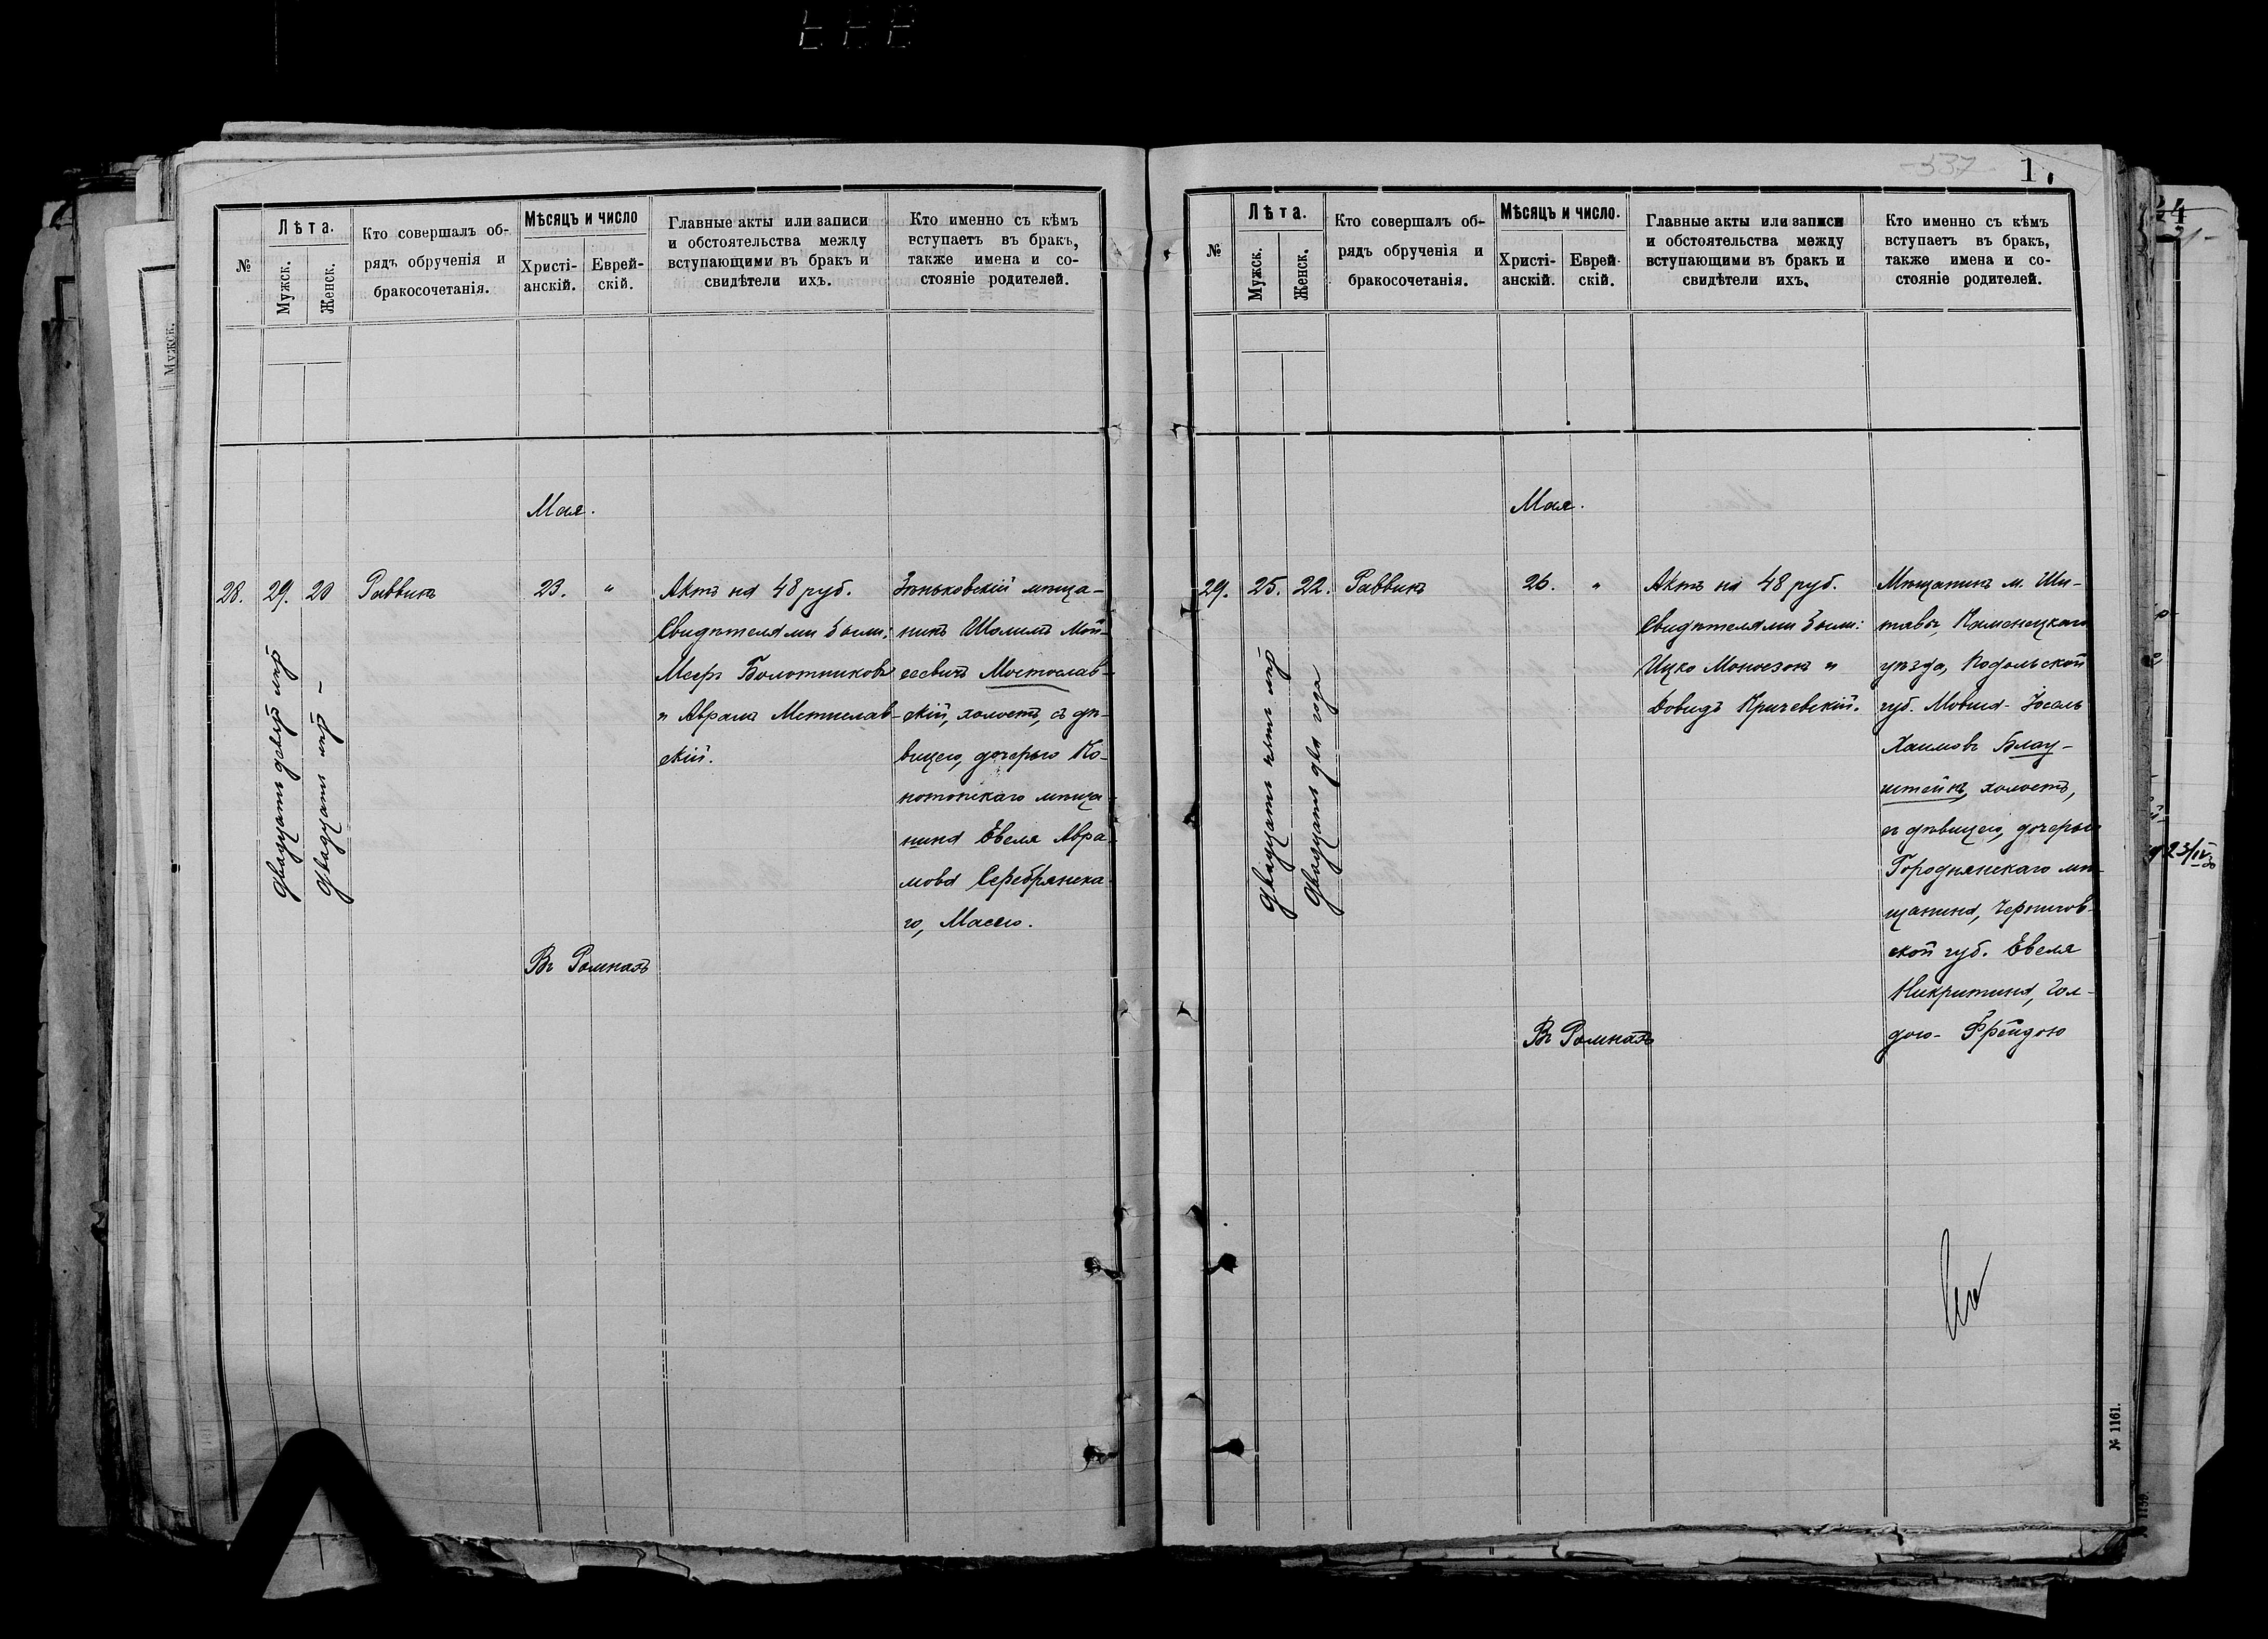 №
Лѣта.
Мужск.
Женск.
Кто совершалъ об-
рядъ обрученія и
бракосочетанія.
Мѣсяцъ и число
Христі-
анскій.
Еврей-
скій.
Главные акты или записи
и обстоятельства между
вступающими въ бракъ и
свидѣтели ихъ.
Кто именно съ кѣмъ
вступаетъ въ бракъ,
также имена и со-
стояніе родителей.
Мая.
28.
29.
20
двадцать девять лѣтъ
двадцать лѣтъ -
Раввинъ
23.
"
Актъ на 48 руб.
Свидѣтелями были:
Меєръ Болотниковъ
и Аврамъ Мстислав-
скій.
Зѣньковскій мѣща-
нинъ Шолимъ Мой-
сеевичъ Мостослав-
скій, холостъ, съ дѣ-
вицею, дочерью Ко-
нотопскаго мѣща-
нина Евеля Авра-
мова Серебрянска-
го, Масею.
Въ Ромнахъ
337
1.
№
Лѣта.
Мужск.
Женск.
Кто совершалъ об-
рядъ обрученія и
бракосочетанія.
Мѣсяцъ и число.
Христі-
анскій.
Еврей-
скій.
Главные акты или записи
и обстоятельства между
вступающими въ бракъ и
свидѣтели ихъ.
Кто именно съ кѣмъ
вступаетъ въ бракъ,
также имена и со-
стояніе родителей.
Мая.
29.
25.
22.
двадцать пять лѣтъ
двадцать два года
Раввинъ
26.
"
Актъ на 48 руб.
Свидѣтелями были:
Ицко Моносзонъ и
Довидъ Кричевскій.
Мѣщанинъ м. Ши-
тавы, Каменецкаго
уѣзда, Подольской
губ. Мовша-Іосель
Хаимовъ Блау-
штейнъ, холостъ,
съ дѣвицею, дочерью
Городнянскаго мѣ-
щанина, Чернигов-
ской губ. Евеля
Никритина, Гол-
дою-Фрейдою
Въ Ромнахъ
№ 1161.